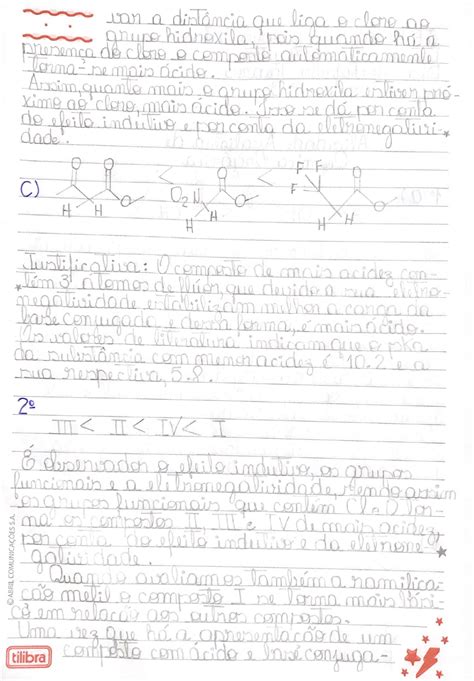 van a distância que liga o cloro ao
grupo hidroxila, pois quando há a
presença do cloro o composto automáticamente
torna-se mais ácido.
Assim, quanto mais o grupo hidroxila estiver pró-
ximo ao cloro, mais ácido. Isso se dá por conta
do efeito indutivo e por conta da eletronegativi-
dade.
C)
O O O H H < O₂N O O H H < F F F O O H H
Justificativa: O composto de mais acidez con-
tém 3 átomos de flúor, que devido a sua eletro-
negatividade estabilizam melhor a carga da
base conjugada e dessa forma, é mais ácido.
Os valores de literatura indicam que o pka
da substância com menor acidez é 10.2 e a
sua respectiva, 5.8.
2º
III < II < IV < I
É observador o efeito indutivo, os grupos
funcionais e a eletronegatividade, sendo assim
os grupos funcionais que contém Cl e O tor-
na os compostos II, III e IV de mais acidez,
por conta do efeito indutivo e da eletrone-
gatividade.
Quando avaliamos também a ramifica-
ção metil o composto I se forma mais bási-
co em relação aos outros compostos.
Uma vez que há a apresentação de um
composto com ácido e base conjuga-
© ABRIL COMUNICAÇÕES S.A.
tilibra